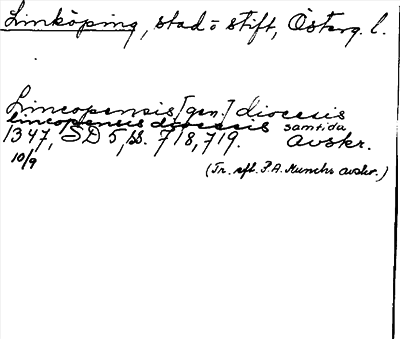 Linköping, stad o stift, Österg. l.
Lincopensis [gen.] diocesis
lincopensis diocesis samtida
1347, SD 5, ss. 718, 719. avskr.
10/9
(Tr. efl. P.A. Munchs avskr.)